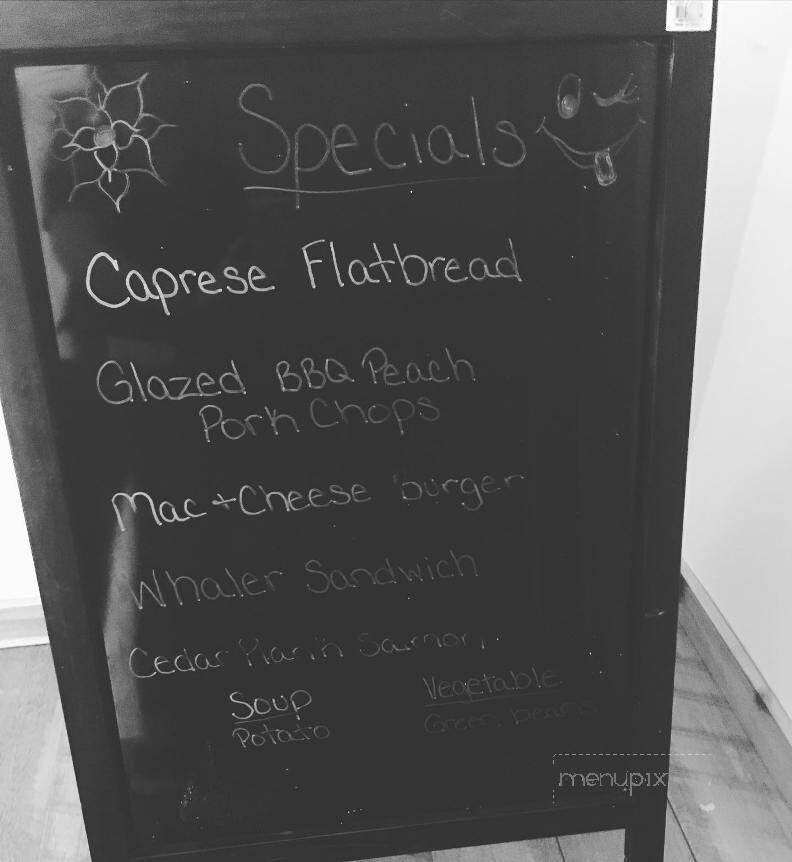 Specials
Caprese Flatbread
Glazed BBQ Peach
Pork Chops
Mac + Cheese burger
Whaler Sandwich
Cedar Plank Salmon
Soup
Potato
Vegetable
Green beans
menupix